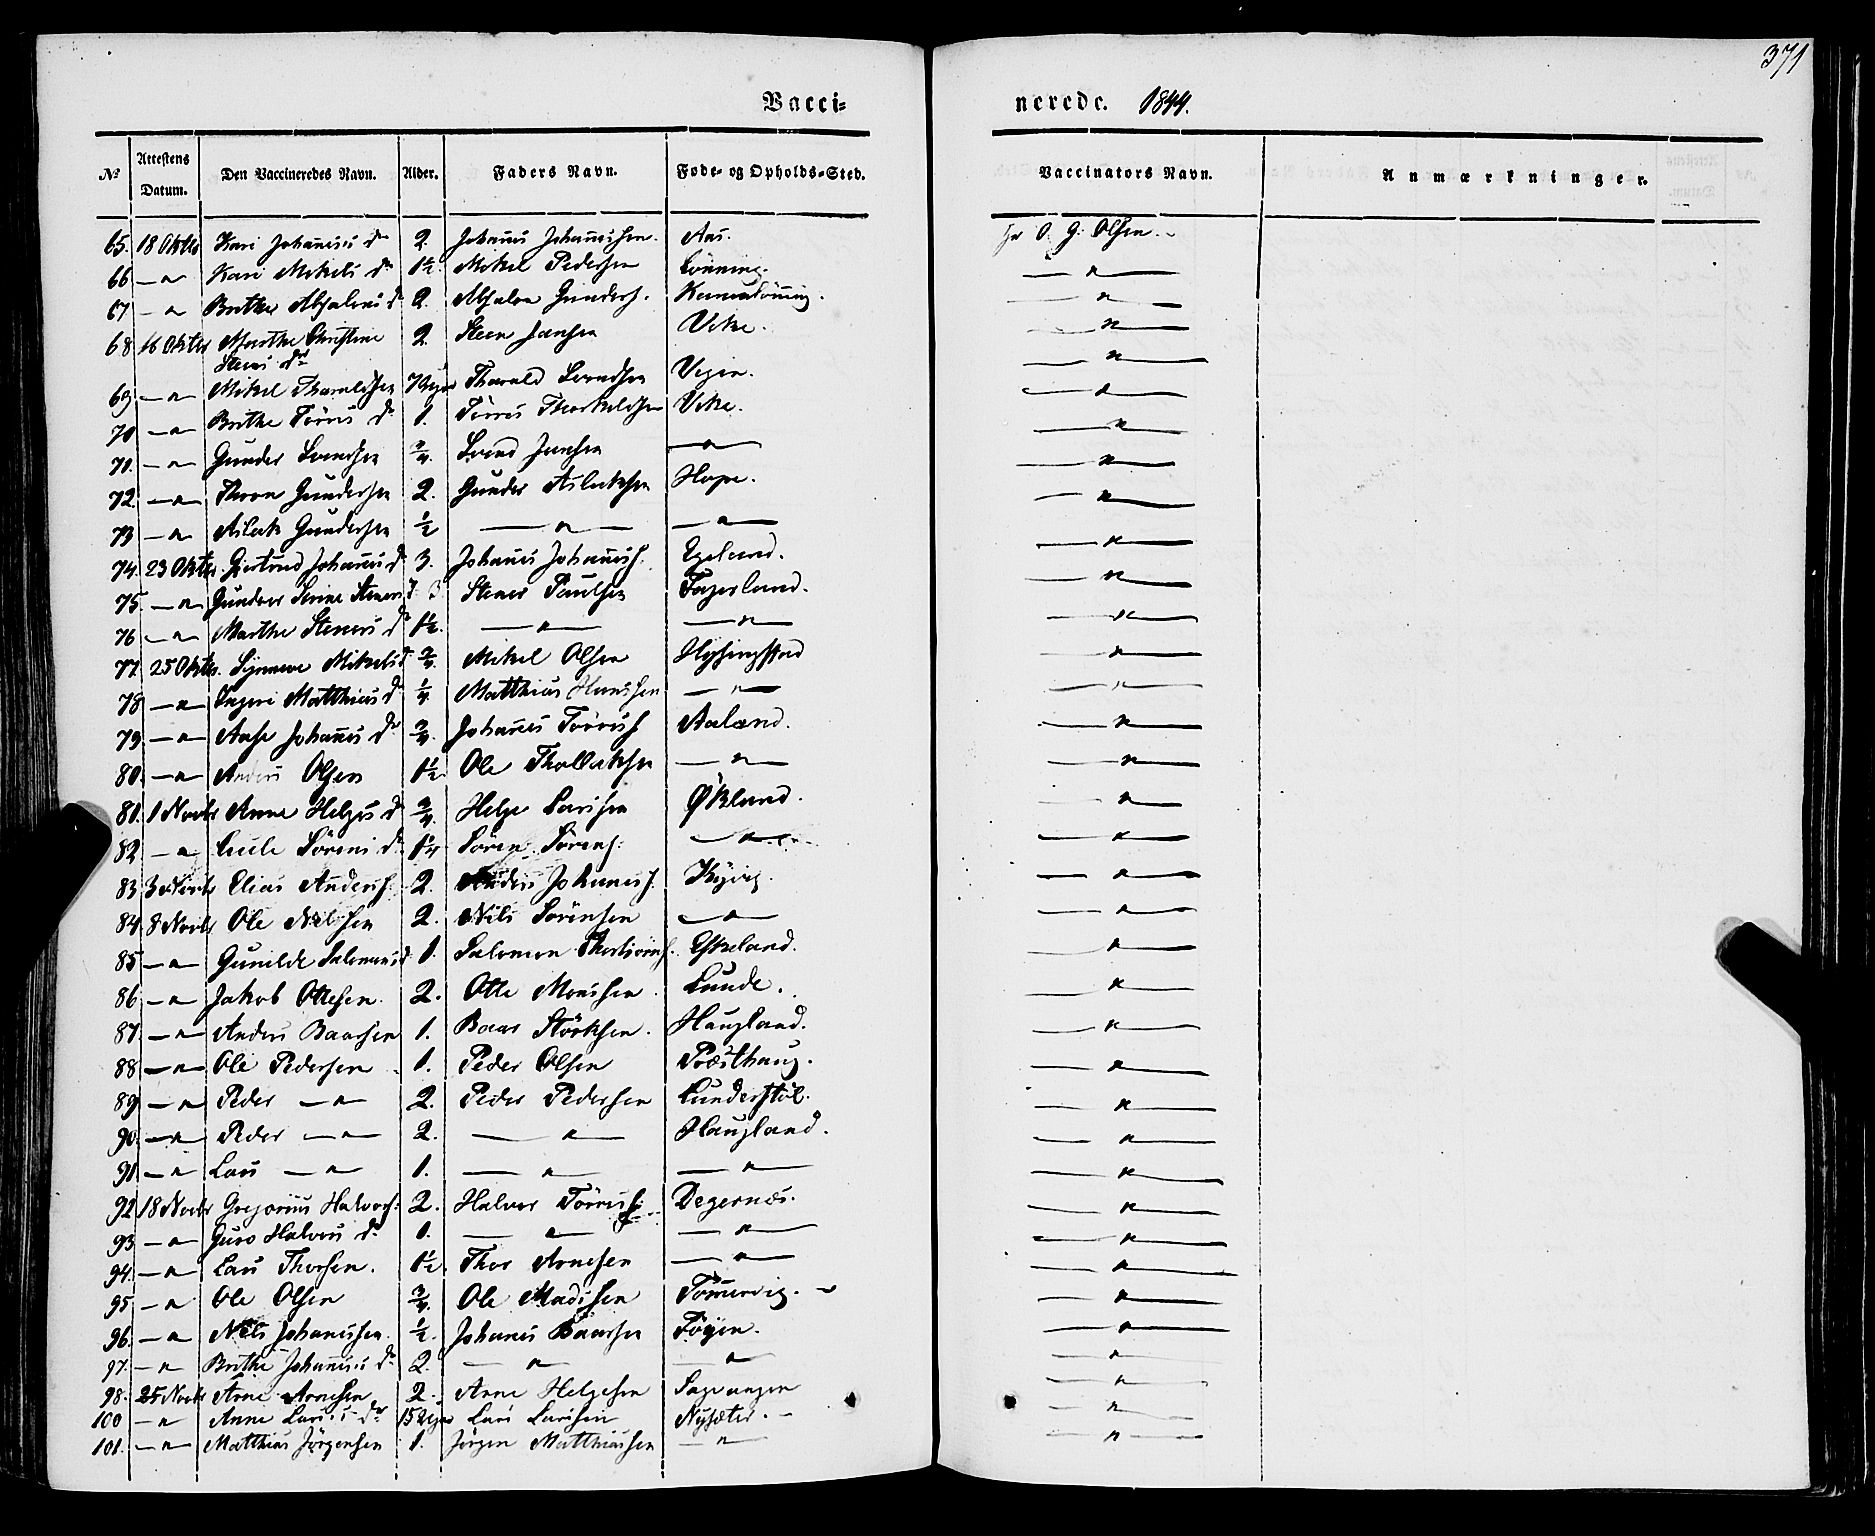 371
Vaccinerede. 1844.
No | Attestens Datum. | Den Vaccineredes Navn. | Alder. | Faders Navn. | Føde- og Opholds-Sted. | Vaccinators Navn. | Anmærkninger.
65. 18 Oktbr Kari Johannes dr 2. Johannes Johannesen. Aas. Hr O. G. Olsen.
66 — " Kari Mikels dr 1½. Mikel Pedersen Lønning. — " —
67 — " Brithe Absalons dr 2. Absalon Gunders. — " —
68 16 Oktbr Marthe Christine 2. Steen Jansen Vike. — " —
Steens dr
69 — " Mikel Tharaldsen Tharald Svendsen — " —
70 — " Brithe Tørres dr 1. Tørres Thorkeldsen Vike. — " —
71. — " Gunder Svendsen ¾. Svend Jansen — " — — " —
72. — " Thron Gundersen 2. Gunder Aslaksen Hope. — " —
73 — " Aslak Gundersen ½ — " — — " — — " —
74. 23 Oktbr. Giertrud Johannes dr 3. Johannes Johannes. Egeland. — " —
75 — " Serine Steners d 3 Stener Paulsen Fagerland. — " —
76 — " Marthe Steners dr 1½. — " — — " — — " —
77. 25 Oktbr. Synneve Mikels d ¾. Mikel Olsen — " —
78 — " Ingeri Matthias dr ¼. Matthias Hansen — " — — " —
79. — " Aase Johannes dr ¾. Johannes Tørres Aaland. — " —
80. — " Anders Olsen 1½ Ole Thollaksen — " — — " —
81. 1 Novbr Anne Helges dr ¾. Helge Larsen Økland. — " —
82 — " Sørens dr 1¼ Søren Sørens. — " — — " —
83 3 Novbr Elias Anders. 2. Anders Johannes. — " —
84 8 Novbr Ole Nilsen 2. Nils Sørensen — " — — " —
85 — " Gunilde Salomons d 1. Salomon Thorbiørns. Eskeland. — " —
86 — " Jakob Ottesen. 2. Otte Monsen Lunde. — " —
87. — " Anders Baarsen 1. Baar Størksen. Haugland. — " —
88 — " Ole Pedersen 1. Peder Olsen Præsthaug. — " —
89 — " Peder — " 2. Peder Pedersen Lunderstøl. — " —
90. — " Peder — " — 2. — " — Haugland. — " —
91. — " Lars — " — 1. — " — — " — — " —
92. 18 Novbr Gregorius Halvors. 2. Halvor Tørres. Degernæs. — " —
93 — " Guro Halvors dr 1. — " — — " — — " —
94. — " Lars Thorsen. 1½ Thor Arnesen — " — — " —
95 — " Ole Olsen ¾. Ole Madsen Tømmervig. — " —
96. — " Nils Johannesen. ½. Johannes Baarsen Føyen. — " —
97. — " Brithe Johannes dr 2. — " — — " — — " —
98. 25 Novbr Arne Arnesen 2. Arne Helgesen Sagvangen — " —
100 — " Anne Lars dr Lars Larsen Nysæter. — " —
101. — " Matthias Jørgensen 1. Jørgen Matthiassen — " — — " —